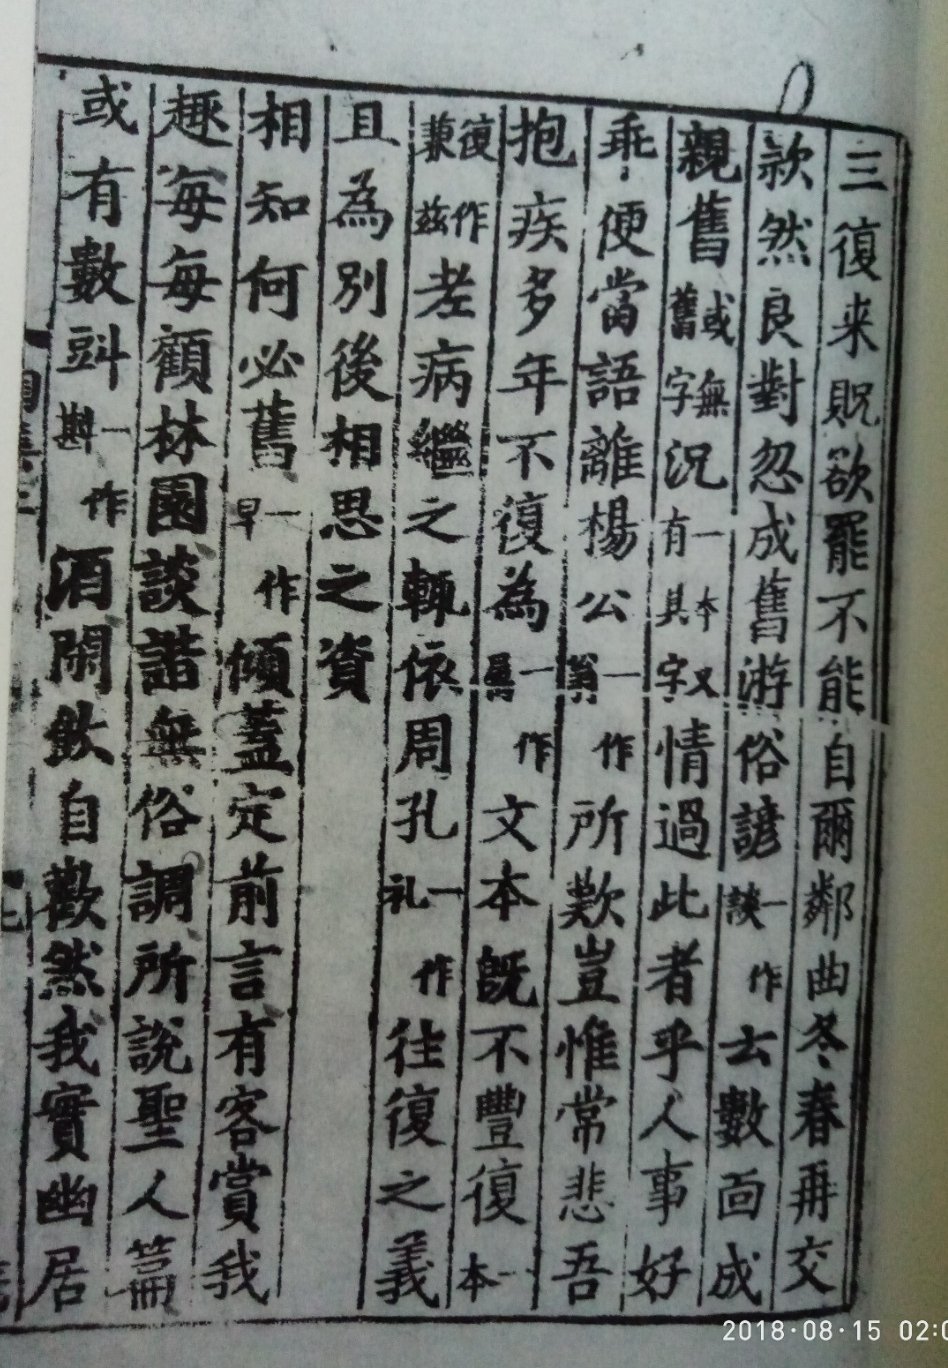 三復来貺欲罷不能自爾鄰曲冬春再交
款然良對忽成舊游俗諺一作去數面成
親舊或無舊字況一本又有其字情過此者乎人事好
乖便當語離楊公一作翁所歎豈惟常悲吾
抱疾多年不復為一作文本既不豐復一本
復作兼兹老病繼之輒依周孔一作礼往復之義
且為別後相思之資
相知何必舊一作早傾蓋定前言有客賞我
趣每每顧林園談諧無俗調所說聖人篇
或有數㪷一作斟酒閑飲自歡然我實幽居
2018·08·15 02:0